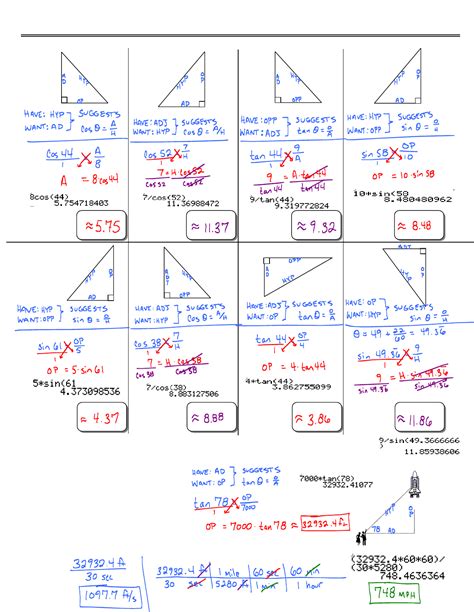 HAVE: HYP } SUGGESTS
WANT: AD } cos θ = A/H
cos 44 A/8
1
A = 8 cos 44
8cos(44)
5.754718403
≈ 5.75
HAVE: ADJ } SUGGESTS
WANT: HYP } cos θ = A/H
cos 52 7/H
1
7 = H cos 52
cos 52 cos 52
7/cos(52)
11.36988472
≈ 11.37
HAVE: OPP } SUGGESTS
WANT: ADJ } tan θ = O/A
tan 44 9/A
1
9 = A tan 44
tan 44 tan 44
9/tan(44)
9.319772824
≈ 9.32
HAVE: HYP } SUGGESTS
WANT: OPP } sin θ = O/H
sin 58 OP/10
1
OP = 10 · sin 58
10*sin(58
8.480480962
≈ 8.48
HAVE: HYP } SUGGESTS
WANT: OPP } sin θ = O/H
sin 61 OP/5
1
OP = 5 · sin 61
5*sin(61
4.373098536
≈ 4.37
HAVE: ADJ } SUGGESTS
WANT: HYP } cos θ = A/H
cos 38 7/H
1
7 = H cos 38
cos 38 cos 38
7/cos(38)
8.883127506
≈ 8.88
HAVE: ADJ } SUGGESTS
WANT: OP } tan θ = O/A
tan 44 OP/4
1
OP = 4 · tan 44
4*tan(44)
3.862755099
≈ 3.86
HAVE: OP } SUGGESTS
WANT: HYP } sin θ = O/H
θ = 49 + 22/60 = 49.36
sin 49.36 9/H
1
9 = H sin 49.36
sin 49.36 sin 49.36
≈ 11.86
9/sin(49.3666666
6)
11.85938606
HAVE: AD } SUGGESTS
WANT: OP } tan θ = O/A
7000*tan(78)
32932.41077
tan 78 OP/7000
1
OP = 7000 · tan 78 ≈ 32932.4 ft
HYP
OP
78 AD
(32932.4*60*60)/
(30*5280)
748.4636364
748 MPH
32932.4 ft
30 sec
1097.7 ft/s
32932.4 ft 1 mile 60 sec 60 min
30 sec 5280 ft 1 min 1 hour